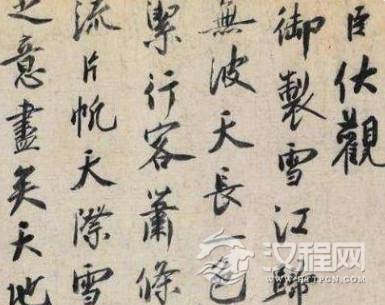 臣伏觀
御製雪江歸
無波天長一色
潔行客蕭條
流片帆天際雪
之意盡矣天地
汉程网